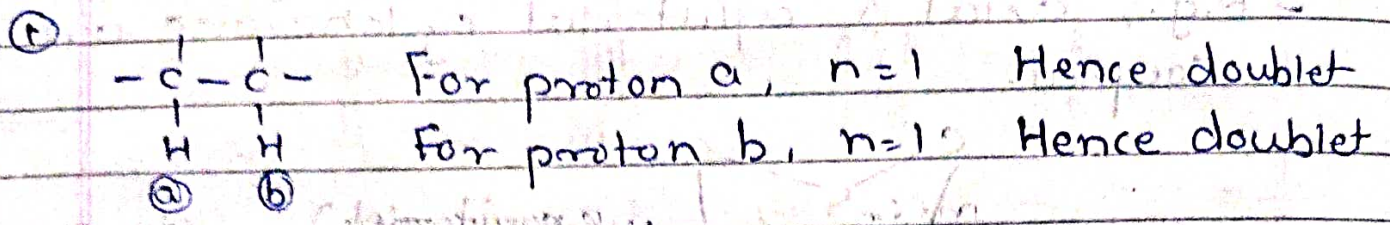 ①
- C - C - For proton a, n=1 Hence doublet
H H For proton b, n=1 Hence doublet
ⓐ ⓑ